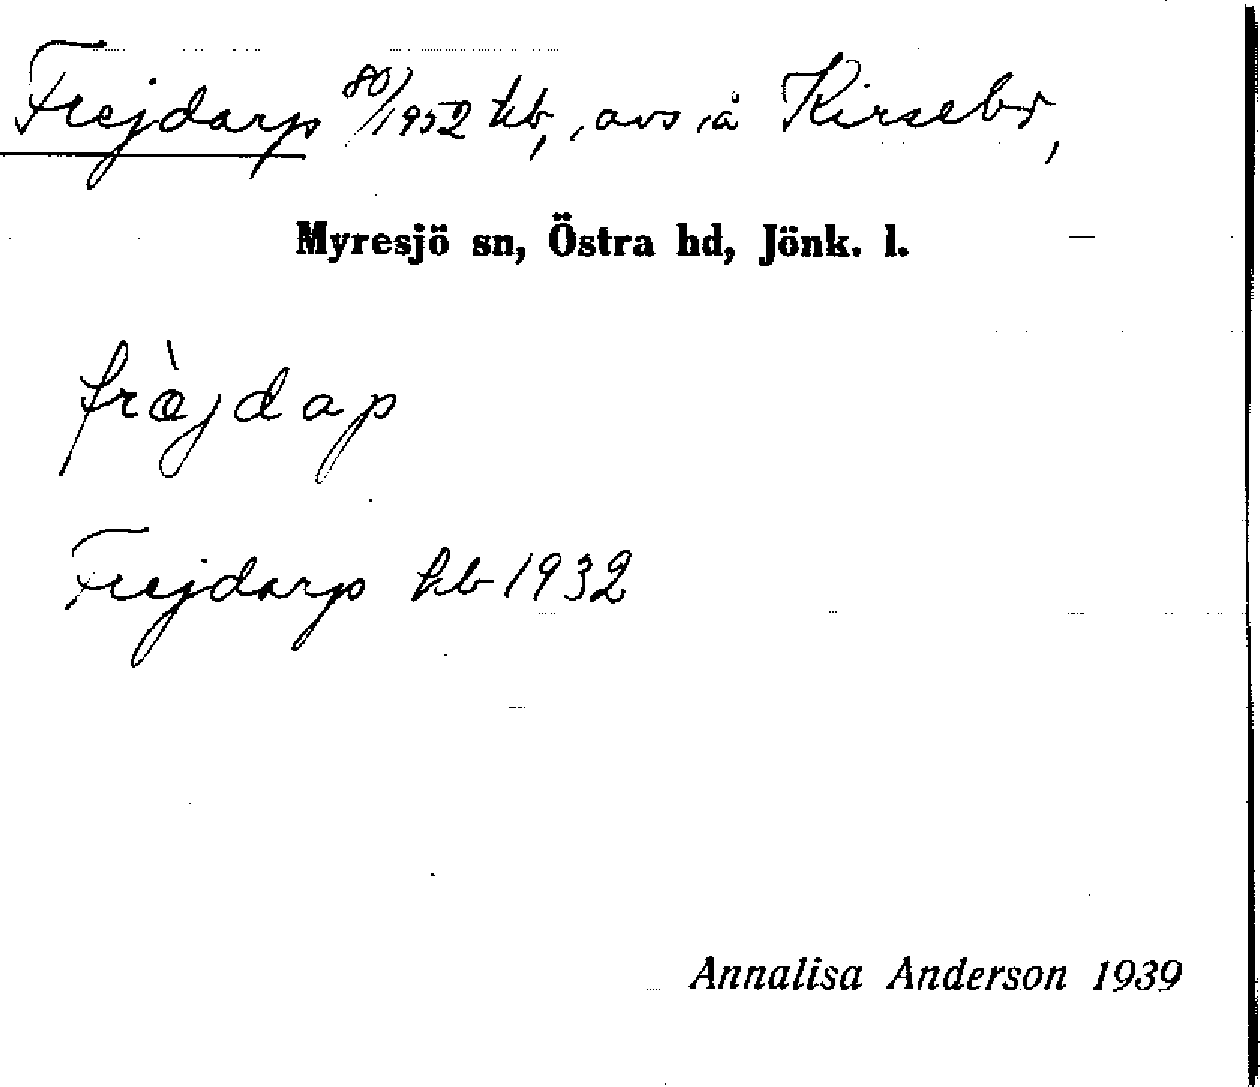 Frejdarp 80/1952 kb, avs å Kirsebr,
Myresjö sn, Östra hd, Jönk. l.
fræ̀jdap
Frejdarp kb 1932
Annalisa Anderson 1939